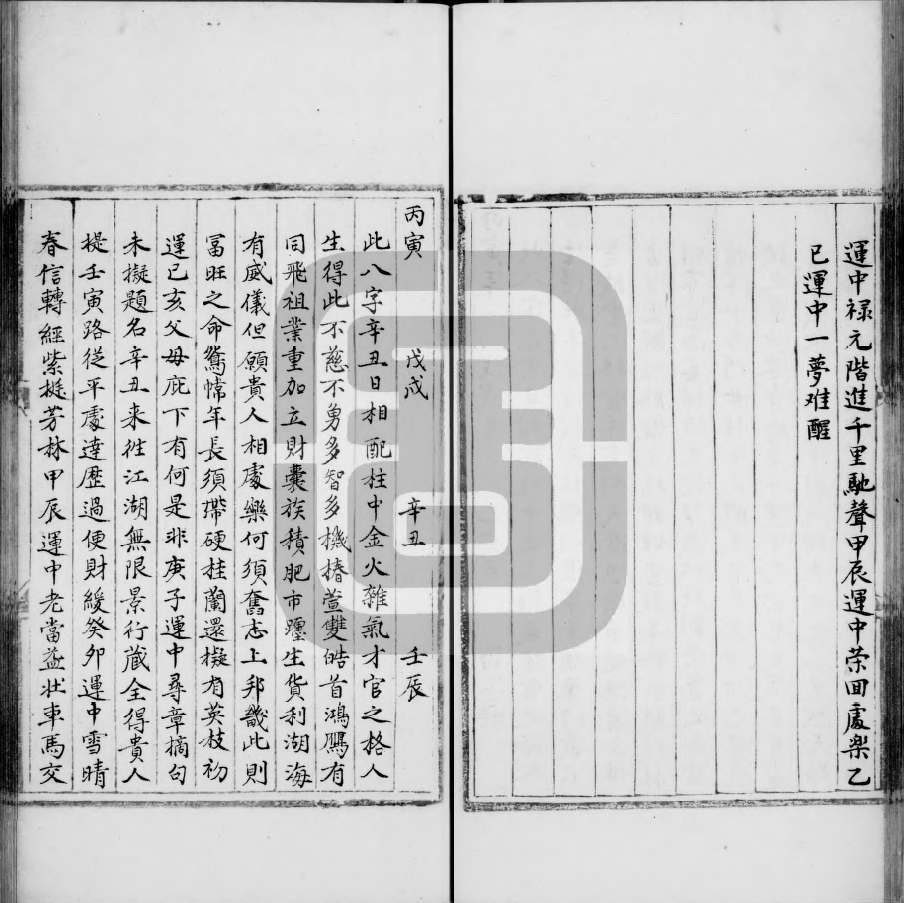 運中禄元階進千里馳聲甲辰運中荣回處楽乙
巳運中一夢难醒
丙寅 戊戌 辛丑 壬辰
此八字辛丑日相配柱中金火雜氣才官之格人
生得此不慈不勇多智多機椿萱雙皓首鴻鴈有
同飛祖業重加立財囊族積肥市㕓生貨利湖海
有威儀但願貴人相處樂何須奮志上邦畿此則
冨旺之命鴛幃年長須帶硬桂蘭還擬有英枝初
運已亥父母庇下有何是非庚子運中尋章摘句
未擬題名辛丑来往江湖無限景行藏全得貴人
提壬寅路従平處達歴過便財緩癸夘運中雪晴
春信轉經紫挺芳林甲辰運中老當益壮車馬交